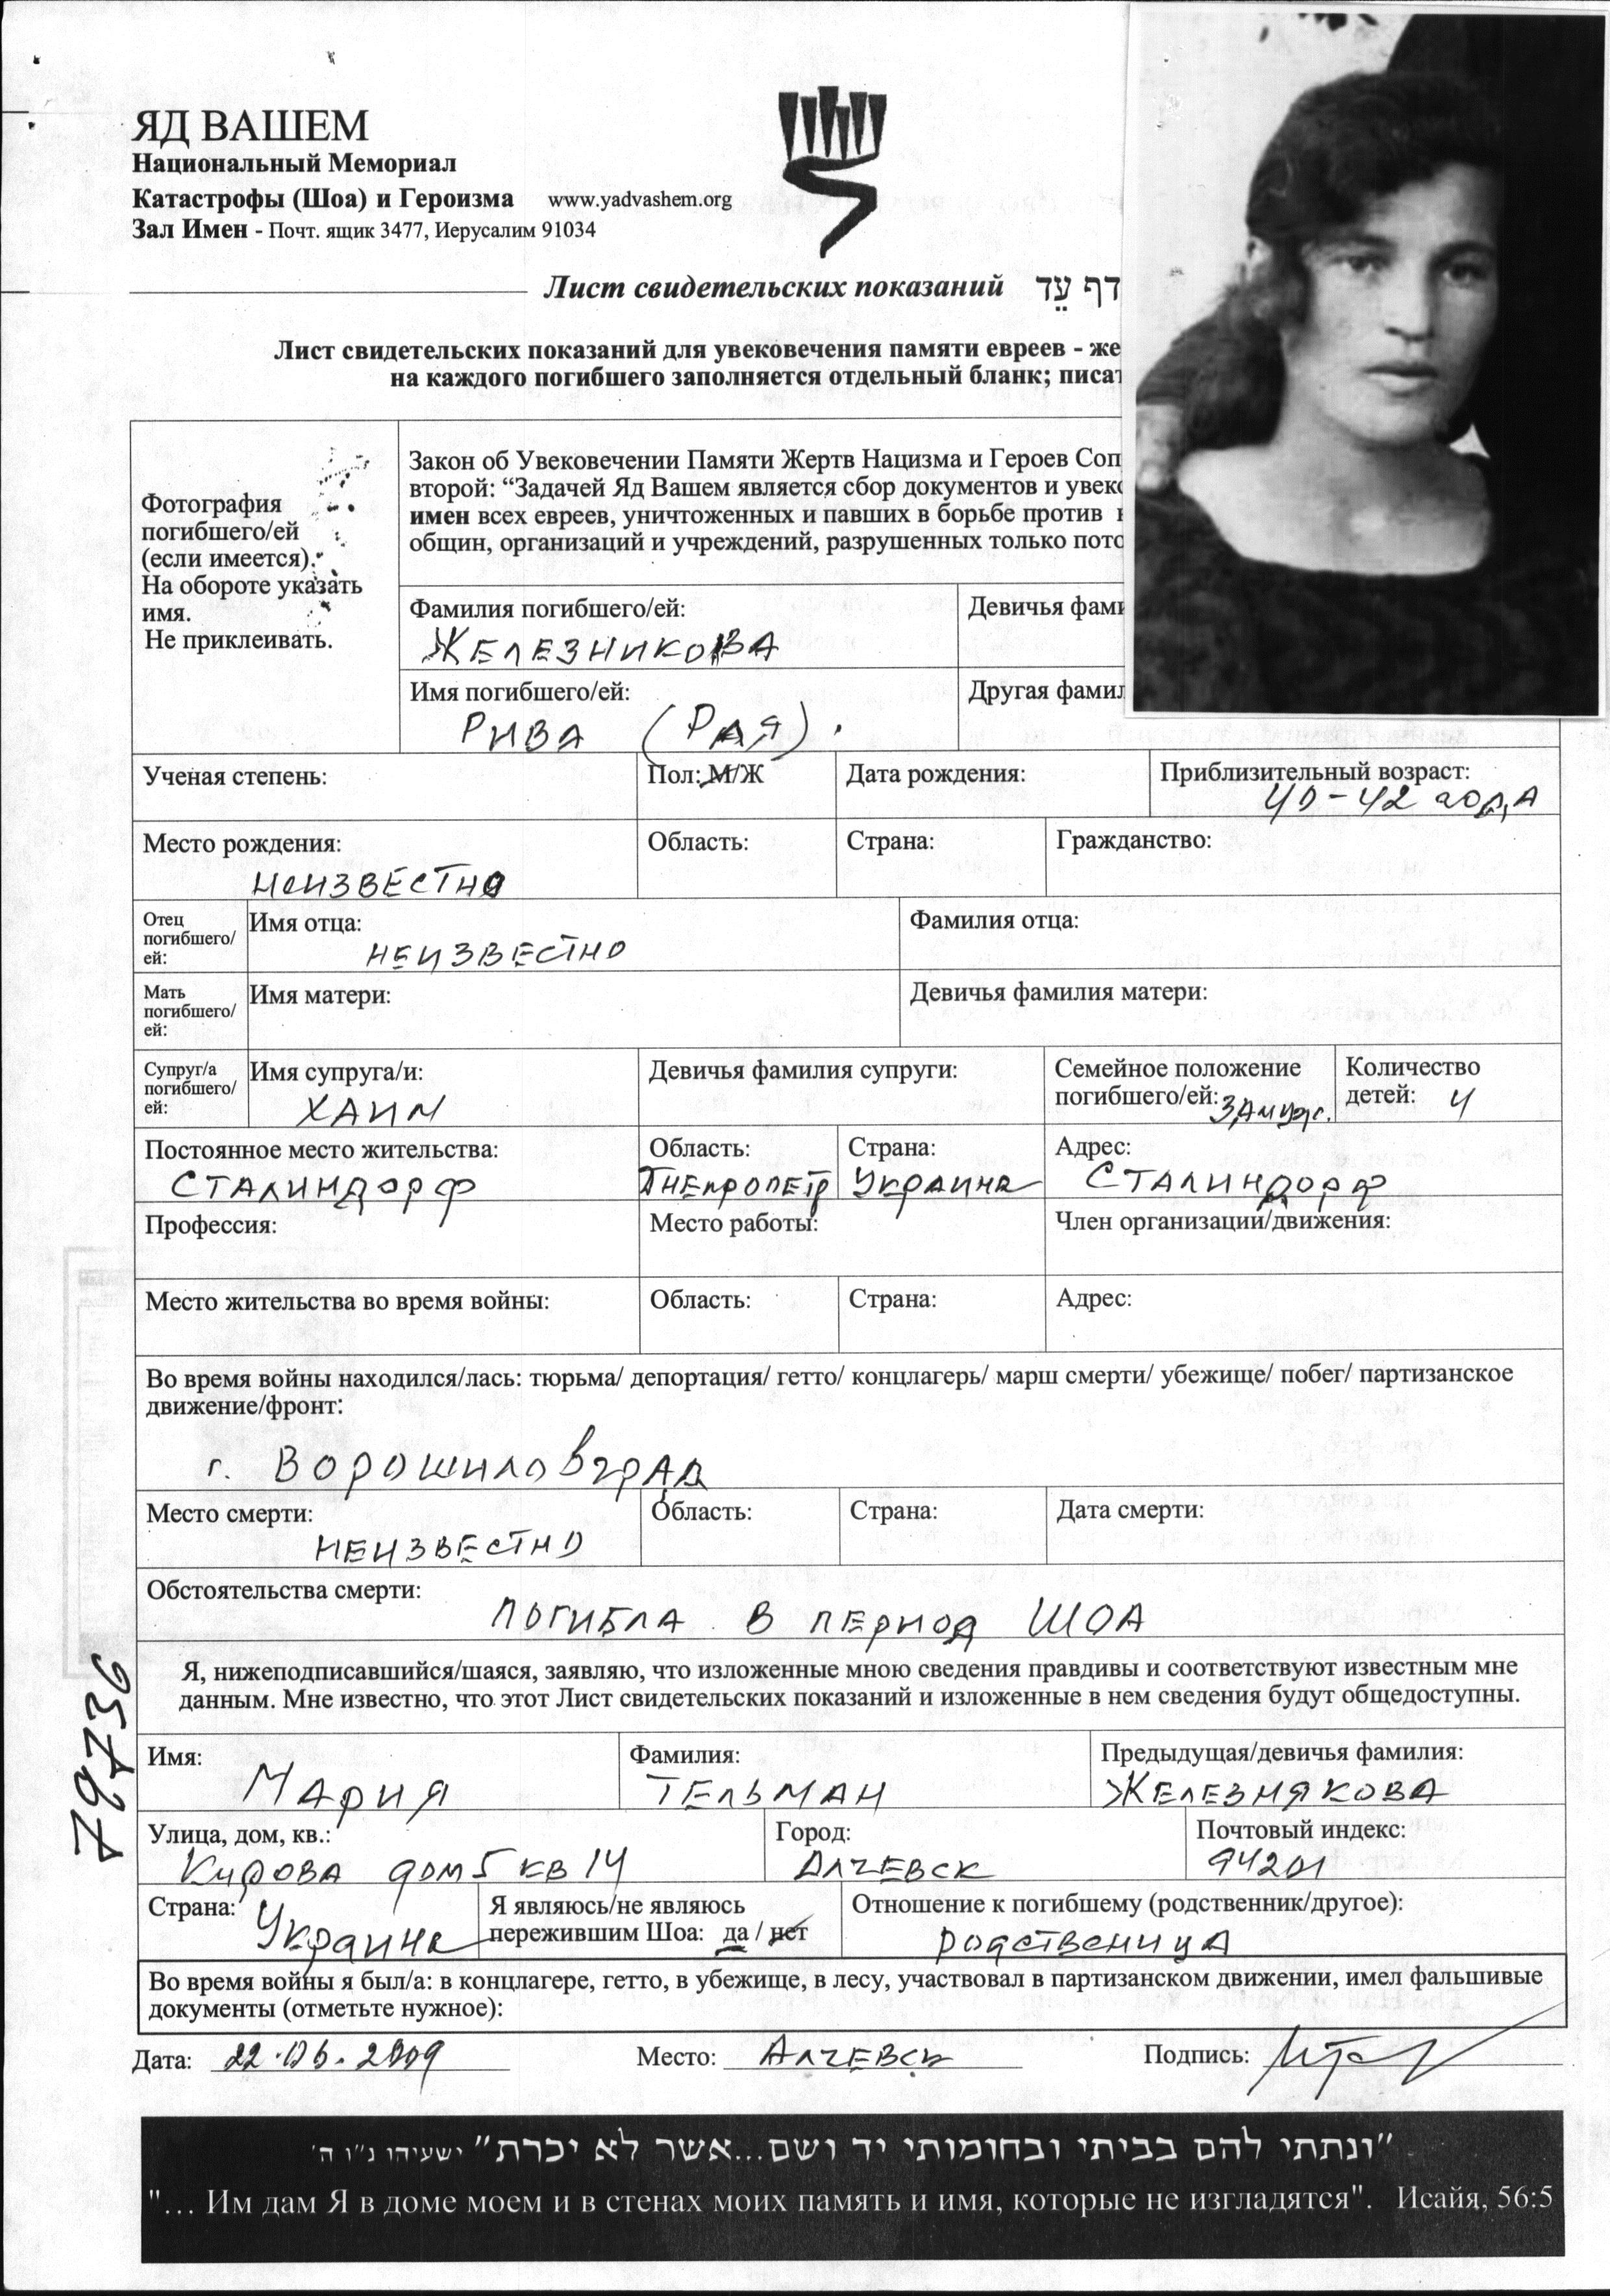 ЯД ВАШЕМ
Национальный Мемориал
Катастрофы (Шоа) и Героизма www.yadvashem.org
Зал Имен - Почт. ящик 3477, Иерусалим 91034
Лист свидетельских показаний דף עֵד
Лист свидетельских показаний для увековечения памяти евреев - же
на каждого погибшего заполняется отдельный бланк; писат
Фотография
погибшего/ей
(если имеется).
На обороте указать
имя.
Не приклеивать.
Закон об Увековечении Памяти Жертв Нацизма и Героев Соп
второй: “Задачей Яд Вашем является сбор документов и увек
имен всех евреев, уничтоженных и павших в борьбе против
общин, организаций и учреждений, разрушенных только пото
Фамилия погибшего/ей: Девичья фами
ЖЕЛЕЗНИКОВА
Имя погибшего/ей: Другая фамил
РИВА (РАЯ).
Ученая степень: Пол: М/Ж Дата рождения: Приблизительный возраст:
40-42 года
Место рождения: Область: Страна: Гражданство:
НЕИЗВЕСТНО
Отец погибшего/ей: Имя отца: Фамилия отца:
НЕИЗВЕСТНО
Мать погибшего/ей: Имя матери: Девичья фамилия матери:
Супруг/а погибшего/ей: Имя супруга/и: Девичья фамилия супруги: Семейное положение погибшего/ей: Количество детей: 4
ХАИМ ЗАМУЖ.
Постоянное место жительства: Область: Страна: Адрес:
СТАЛИНДОРФ ДНЕПРОПЕТР УКРАИНА СТАЛИНДОРФ
Профессия: Место работы: Член организации/движения:
Место жительства во время войны: Область: Страна: Адрес:
Во время войны находился/лась: тюрьма/ депортация/ гетто/ концлагерь/ марш смерти/ убежище/ побег/ партизанское
движение/фронт:
г. Ворошиловград
Место смерти: Область: Страна: Дата смерти:
НЕИЗВЕСТНО
Обстоятельства смерти:
ПОГИБЛА В ПЕРИОД ШОА
Я, нижеподписавшийся/шаяся, заявляю, что изложенные мною сведения правдивы и соответствуют известным мне
данным. Мне известно, что этот Лист свидетельских показаний и изложенные в нем сведения будут общедоступны.
79736
Имя: Фамилия: Предыдущая/девичья фамилия:
МАРИЯ ТЕЛЬМАН ЖЕЛЕЗНЯКОВА
Улица, дом, кв.: Город: Почтовый индекс:
Кирова дом 5 кв 14 АЛЧЕВСК 94201
Страна: Я являюсь/не являюсь Отношение к погибшему (родственник/другое):
Украина пережившим Шоа: да / нет родственица
Во время войны я был/а: в концлагере, гетто, в убежище, в лесу, участвовал в партизанском движении, имел фальшивые
документы (отметьте нужное):
Дата: 22.06.2009 Место: АЛЧЕВСК Подпись:
"ונתתי להם בביתי ובחומותי יד ושם...אשר לא יכרת" ישעיהו נ"ו ה'
"... Им дам Я в доме моем и в стенах моих память и имя, которые не изгладятся". Исайя, 56:5